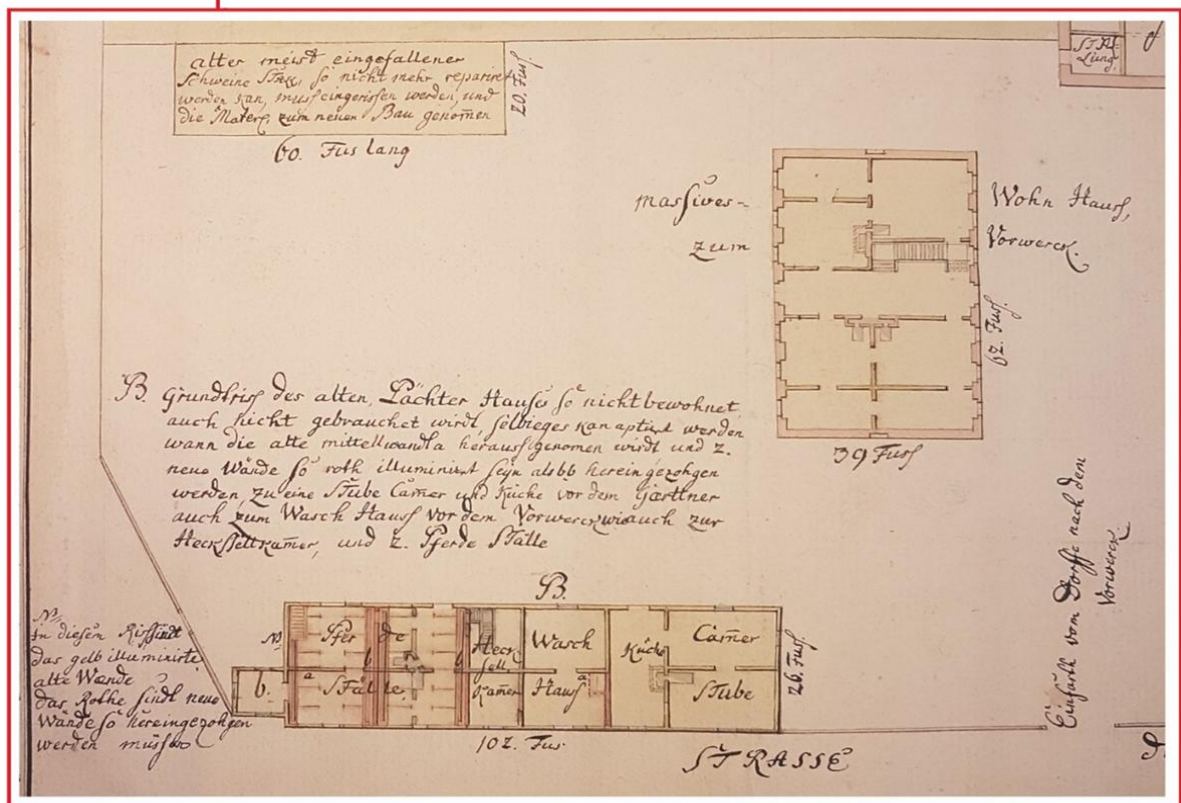 alter meist eingefallener
Schweine Stall, so nicht mehr repariret
werden kan, muss eingerissen werden, und
die Mater, zum neuen Bau genom̄en
20. Fus
60. Fus lang
STAL-
Lung.
massives-
zum
Wohn Hauss,
Vorwerck.
62. Fuss.
39 Fuss
B. Grundriss des alten Pächter Hauses so nicht bewohnet,
auch nicht gebrauchet wirdt, selbieges kan aptirt werden
wann die alte mittellwandt a herauss genomen wirdt und 2.
neue Wände so roth illuminirt seyn als bb hereingezohgen
werden, zu eine Stube Cam̄er und Küche vor dem Gärttner
auch zum Wasch Hauss vor dem Vorwerck wie auch zur
Heckssellkam̄er, und 2. Pferde Ställe
B.
NB.
in diesen Riss sindt
das gelb illuminirte
alte Wände
das Rothe sindt neue
Wände so hereingezohgen
werden müssen
NB
b.
Pfer de
Ställe
a
b
b
Heck
sell
Kam̄er
Wasch
Hauss
a
Küche
Cam̄er
Stube
26. Fuss.
102. Fus.
STRASSE
Einfarth vom Dorffe nach dem
Vorwerck